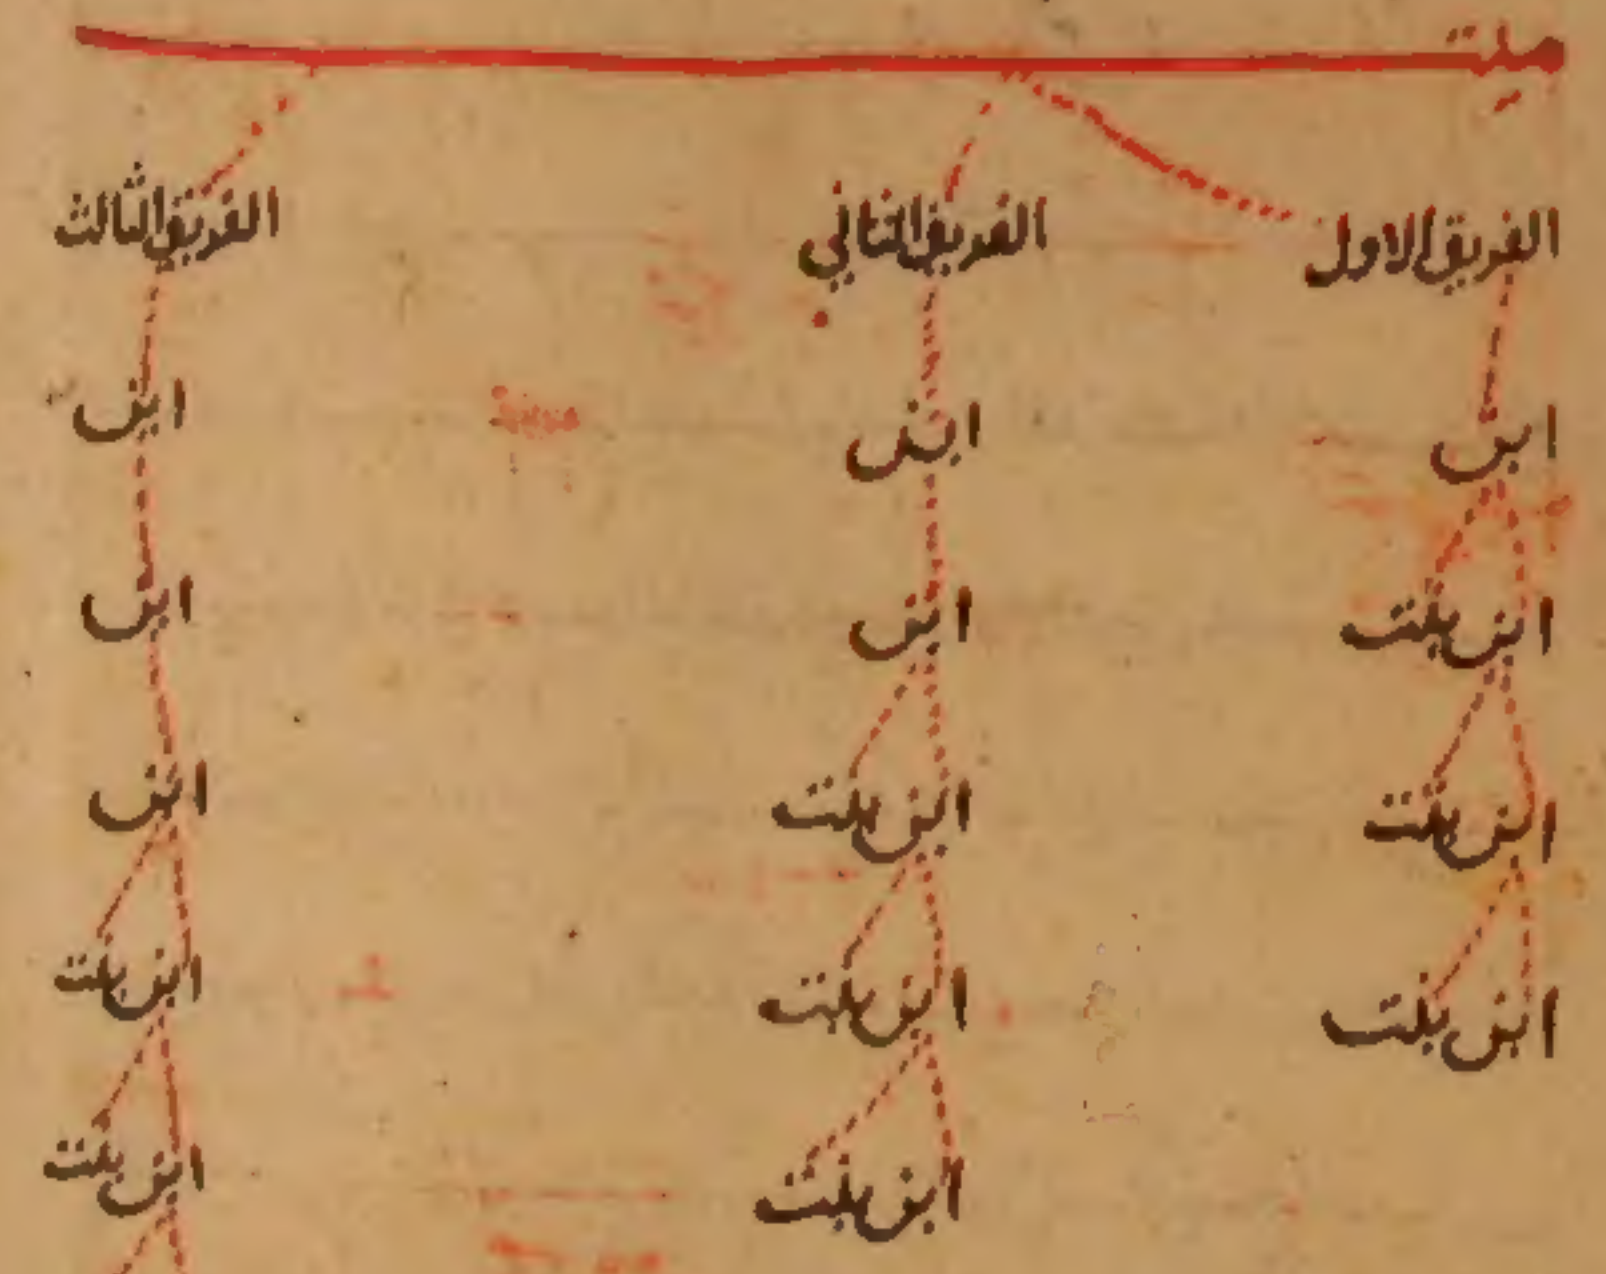 ميت
الفريق الاول
ابن
ابن بنت
ابن بنت
ابن بنت
الفريق الثاني
ابن
ابن
ابن بنت
ابن بنت
ابن بنت
الفريق الثالث
ابن
ابن
ابن
ابن بنت
ابن بنت